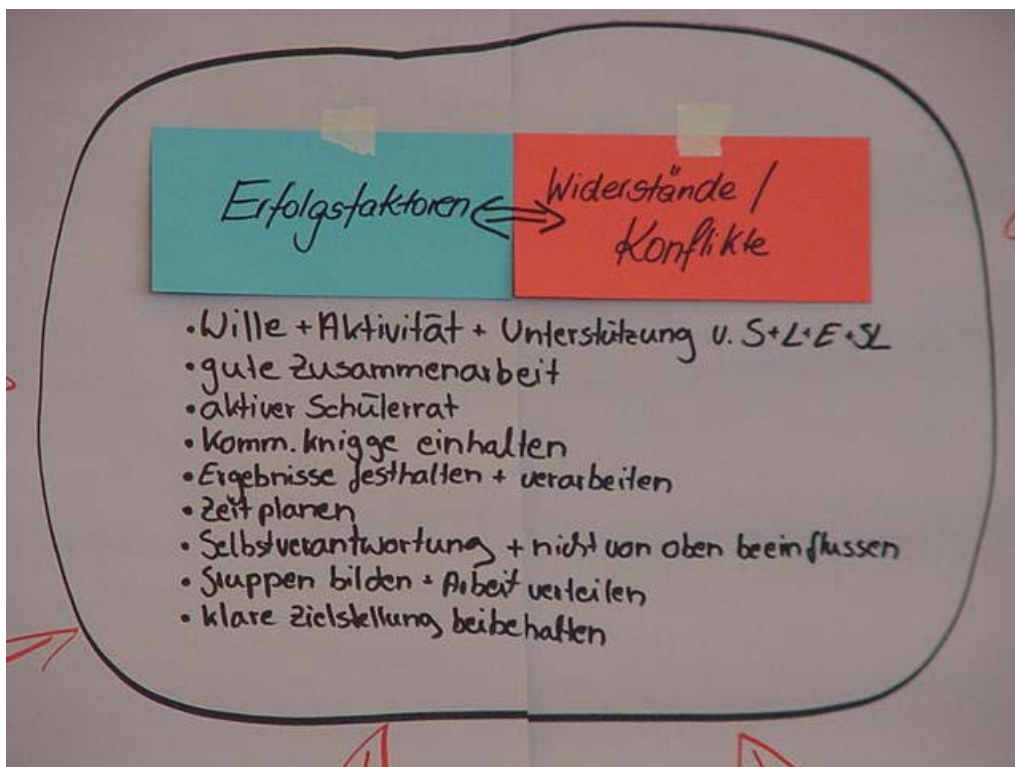 Erfolgsfaktoren <=> Widerstände /
Konflikte
• Wille + Aktivität + Unterstützung v. S+L+E+SL
• gute Zusammenarbeit
• aktiver Schülerrat
• Komm.knigge einhalten
• Ergebnisse festhalten + verarbeiten
• Zeit planen
• Selbstverantwortung + nicht von oben beeinflussen
• Gruppen bilden + Arbeit verteilen
• klare Zielstellung beibehalten